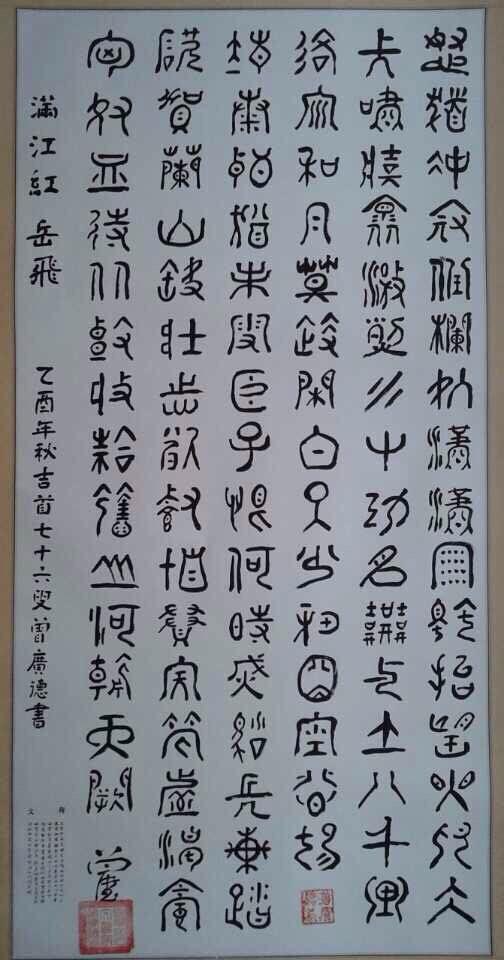 怒髮沖冠憑欄処瀟瀟雨歇抬望眼仰天
長嘯壯懷激烈三十功名塵與土八千里
路雲和月莫等閒白了少年頭空悲切
靖康恥猶未雪臣子恨何時滅駕長車踏
破賀蘭山缺壯志飢餐胡虜肉笑談渴飲
匈奴血待從頭收拾舊山河朝天闕
滿江紅 岳飛 乙酉年秋吉首七十六叟曾廣德書
釋文